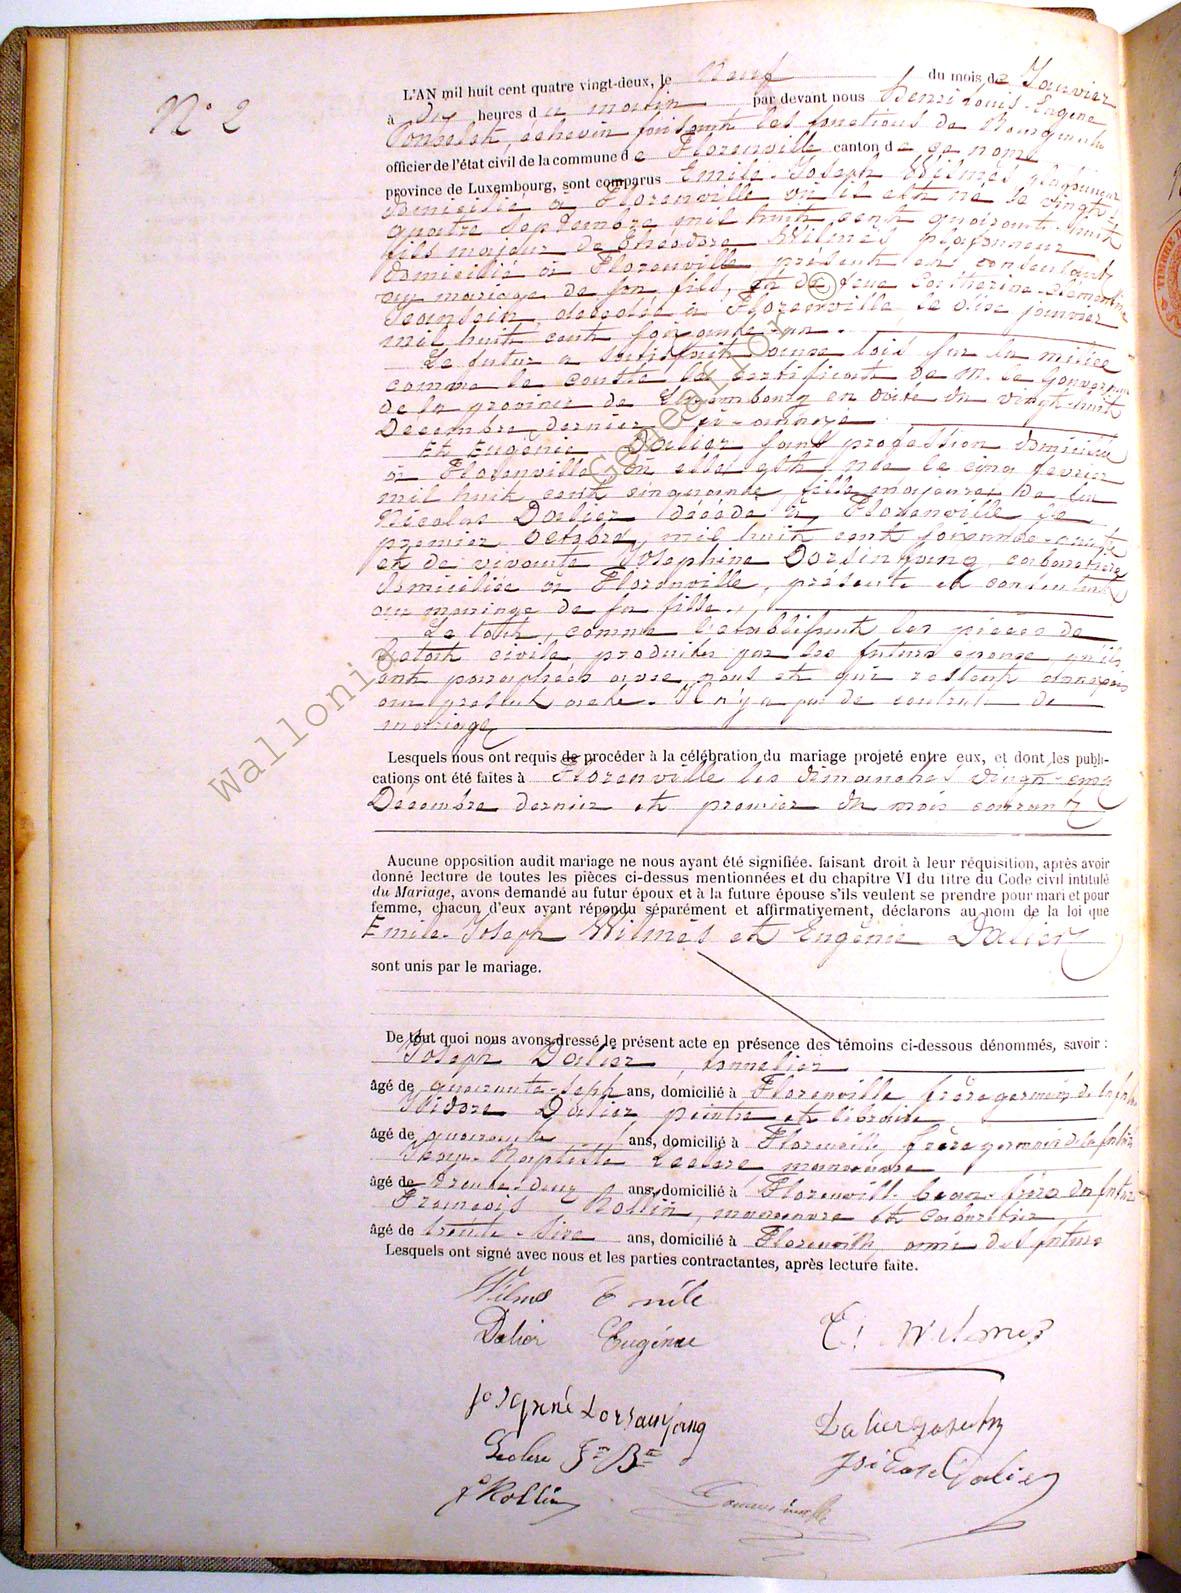 N° 2
L'AN mil huit cent quatre vingt-deux, le Neuf du mois de Janvier
à dix heures du matin par devant nous Henri Louis-Eugène
échevin faisant les fonctions de Bourgmestre
officier de l'état civil de la commune de Florenville canton de ce nom
province de Luxembourg, sont comparus Emile-Joseph Wilmès plafonneur
domicilié à Florenville où il est né le vingt-
quatre Septembre mil huit cent quarante-huit
fils majeur de Théodore Wilmès plafonneur
domicilié à Florenville présent et consentant
au mariage de son fils, et de feue Catherine-Clémentine
décédée à Florenville le onze janvier
mil huit cent soixante-un.
Le futur a satisfait aux lois sur la milice
comme le constate le certificat de M. le Gouverneur
de la province de Luxembourg en date du vingt-huit
Décembre dernier ci-annexé.
Et Eugénie Dalier sans profession domiciliée
à Florenville où elle est née le cinq fevrier
mil huit cent cinquante, fille majeure de feu
Nicolas Dalier décédé à Florenville le
premier Octobre mil huit cent soixante-
et de vivante Josephine Dorsinfang, cabaretière
domiciliée à Florenville, présente et consentante
au mariage de sa fille.
Le tout, comme l'établissent les pièces de
l'état civil, produites par les futurs époux qu'ils
ont paraphées avec nous et qui restent annexées
au présent acte. Il n'y a pas de contrat de
mariage
Lesquels nous ont requis de procéder à la célébration du mariage projeté entre eux, et dont les publi-
cations ont été faites à Florenville les dimanches vingt-cinq
Décembre dernier et premier du mois courant
Aucune opposition audit mariage ne nous ayant été signifiée. faisant droit à leur réquisition, après avoir
donné lecture de toutes les pièces ci-dessus mentionnées et du chapitre VI du titre du Code civil intitulé
du Mariage, avons demandé au futur époux et à la future épouse s'ils veulent se prendre pour mari et pour
femme, chacun d'eux ayant répondu séparément et affirmativement, déclarons au nom de la loi que
Emile-Joseph Wilmès et Eugénie Dalier
sont unis par le mariage.
De tout quoi nous avons dressé le présent acte en présence des témoins ci-dessous dénommés, savoir :
Joseph Dalier, tonnelier
âgé de quarante-sept ans, domicilié à Florenville frère germain de la future
Isidore Dalier peintre et libraire
âgé de quarante ans, domicilié à Florenville frère germain de la future
Jean-Baptiste Leclere manoeuvre
âgé de trente-deux ans, domicilié à Florenville beau-frère du futur
François Rollin, manoeuvre et cabaretier
âgé de trente-six ans, domicilié à Florenville, ami des futurs
Lesquels ont signé avec nous et les parties contractantes, après lecture faite.
Wilmes Emile
Dalier Eugénie
T. Wilmes
Dalier Joseph
Leclere Jn Bte
Isidore Dalier
F Rollin
Wallonia Geneestor ©